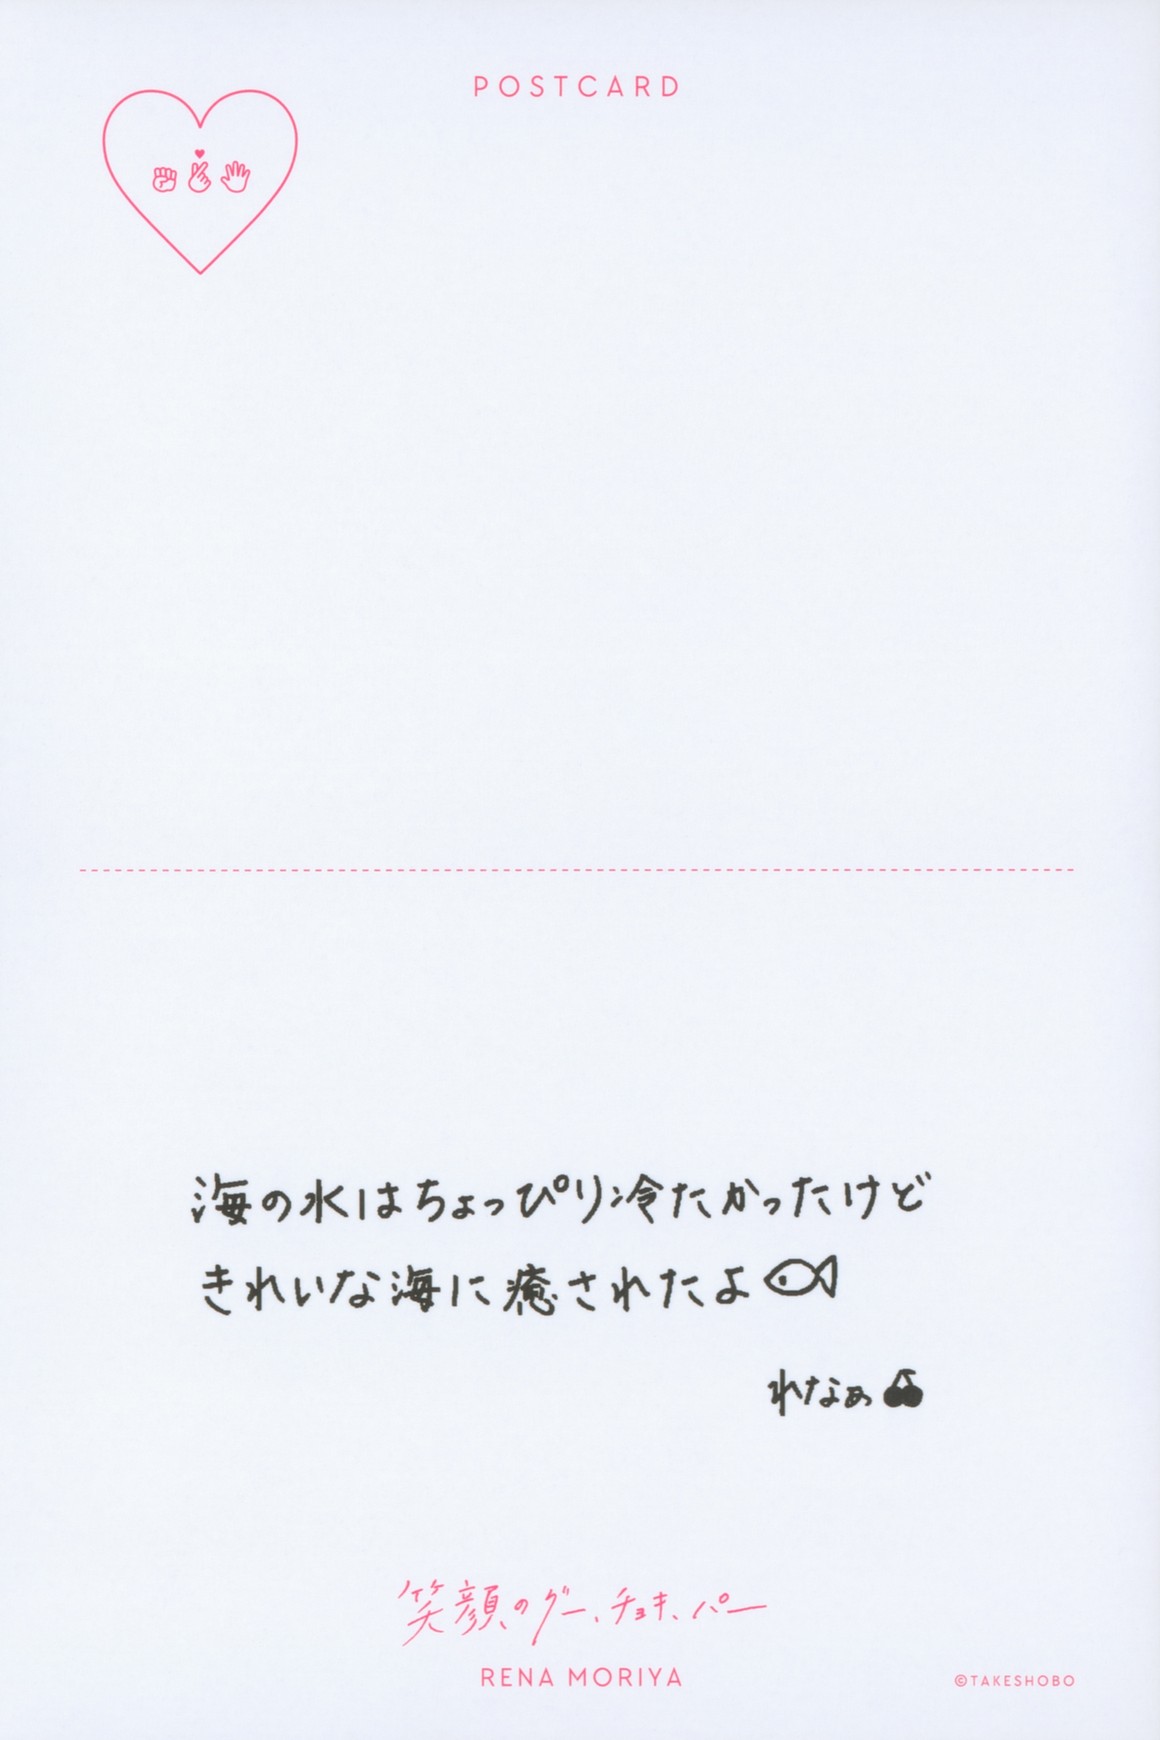 POSTCARD
海の水はちょっぴり冷たかったけど
きれいな海に癒されたよ
れなぁ
笑顔のグー、チョキ、パー
RENA MORIYA
©TAKESHOBO